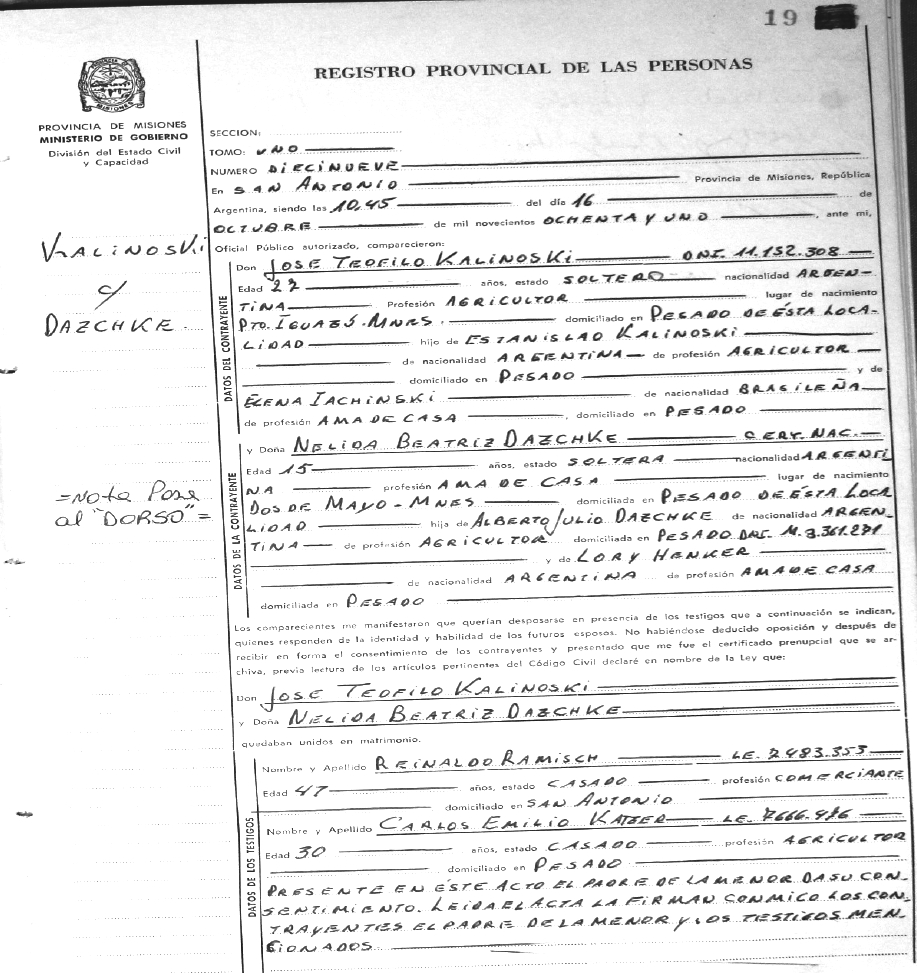 19
REGISTRO PROVINCIAL DE LAS PERSONAS
PROVINCIA DE MISIONES
MINISTERIO DE GOBIERNO
División del Estado Civil
y Capacidad
SECCION:
TOMO: UNO
NUMERO DIECINUEVE
En SAN ANTONIO Provincia de Misiones, República
Argentina, siendo las 10,45 del día 16 de
OCTUBRE de mil novecientos OCHENTA Y UNO, ante mi,
Oficial Público autorizado, comparecieron:
KALINOSKI
c/
DAZCHKE
DATOS DEL CONTRAYENTE
Don JOSE TEOFILO KALINOSKI DNI. 11.152.308
Edad 27 años, estado SOLTERO nacionalidad ARGEN-
TINA Profesión AGRICULTOR lugar de nacimiento
PTO. IGUAZÚ-MNES. domiciliado en PESADO DE ÉSTA LOCA-
LIDAD hijo de ESTANISLAO KALINOSKI
de nacionalidad ARGENTINA de profesión AGRICULTOR
domiciliado en PESADO y de
ELENA IACHINSKI de nacionalidad BRASILEÑA
de profesión AMA DE CASA, domiciliado en PESADO
=Nota Pasa
al "DORSO"=
DATOS DE LA CONTRAYENTE
y Doña NELIDA BEATRIZ DAZCHKE CERT. NAC.
Edad 15 años, estado SOLTERA nacionalidad ARGENTI
NA profesión AMA DE CASA lugar de nacimiento
DOS DE MAYO-MNES domiciliada en PESADO DE ÉSTA LOCA
LIDAD hija de ALBERTO JULIO DAZCHKE de nacionalidad ARGEN-
TINA de profesión AGRICULTOR domiciliado en PESADO DNI. M.
y de LORY HENKER
de nacionalidad ARGENTINA de profesión AMA DE CASA
domiciliada en PESADO
Los comparecientes me manifestaron que querían desposarse en presencia de los testigos que a continuación se indican,
quienes responden de la identidad y habilidad de los futuros esposos. No habiéndose deducido oposición y después de
recibir en forma el consentimiento de los contrayentes y presentado que me fue el certificado prenupcial que se ar-
chiva, previa lectura de los artículos pertinentes del Código Civil declaré en nombre de la Ley que:
Don JOSE TEOFILO KALINOSKI
y Doña NELIDA BEATRIZ DAZCHKE
quedaban unidos en matrimonio.
DATOS DE LOS TESTIGOS
Nombre y Apellido REINALDO RAMISCH LE. 7483.353
Edad 47 años, estado CASADO profesión COMERCIANTE
domiciliado en SAN ANTONIO
Nombre y Apellido CARLOS EMILIO KATZER LE.
Edad 30 años, estado CASADO profesión AGRICULTOR
domiciliado en PESADO
PRESENTE EN ÉSTE ACTO EL PADRE DE LA MENOR DA SU CON-
SENTIMIENTO. LEIDA EL ACTA LA FIRMAN CONMIGO LOS CON-
TRAYENTES EL PADRE DE LA MENOR Y LOS TESTIGOS MEN-
CIONADOS